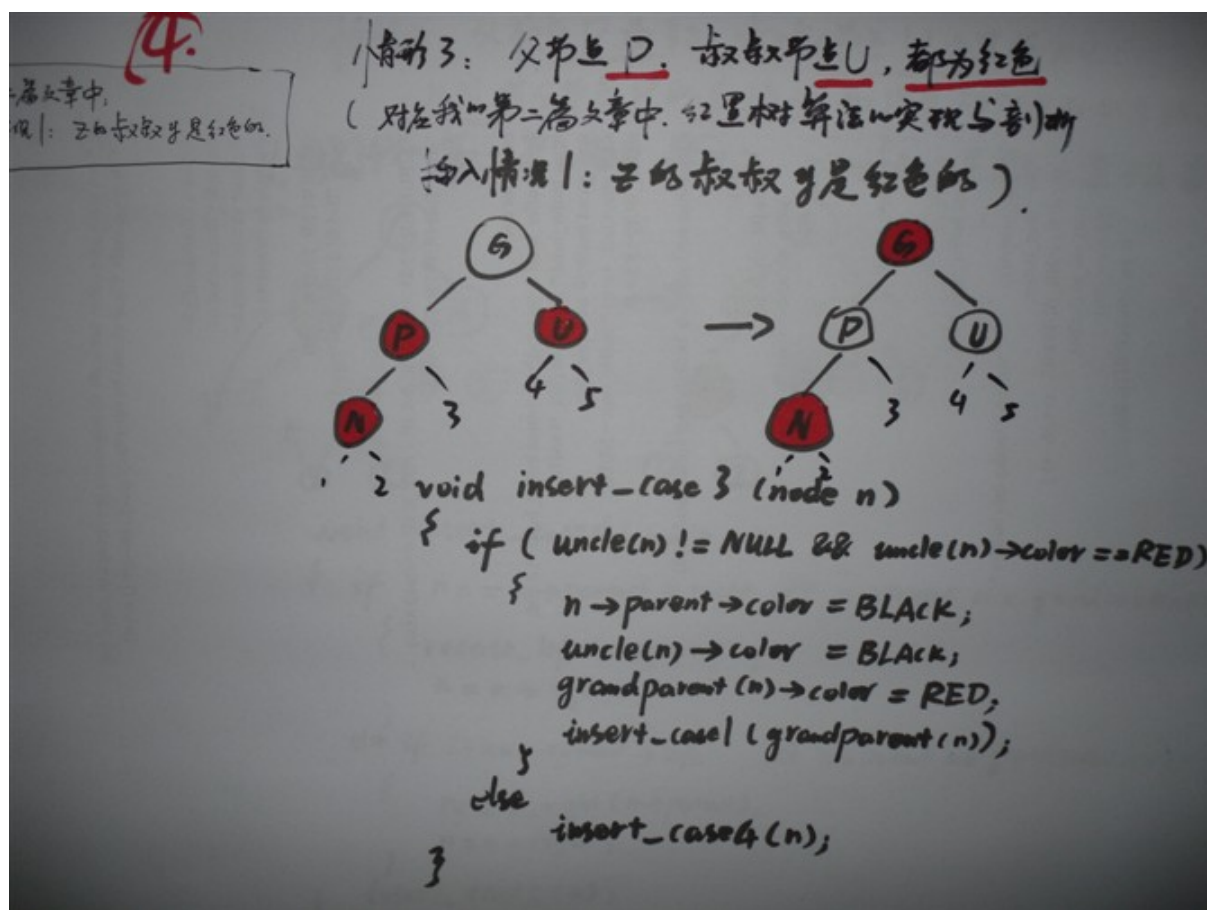 4.
二篇文章中,
情况1: Z的叔叔y是红色的.
情形3: 父节点P, 叔叔节点U, 都为红色
(对应我的第二篇文章中, 红黑树算法的实现与剖析
插入情况1: z的叔叔y是红色的).
G G
P U → P U
N 3 4 5 N 3 4 5
1 2 1 2
void insert_case3 (node n)
{
if ( uncle(n) != NULL && uncle(n)→color == RED)
{
n→parent→color = BLACK;
uncle(n)→color = BLACK;
grandparent(n)→color = RED;
insert_case1 (grandparent(n));
}
else
insert_case4(n);
}